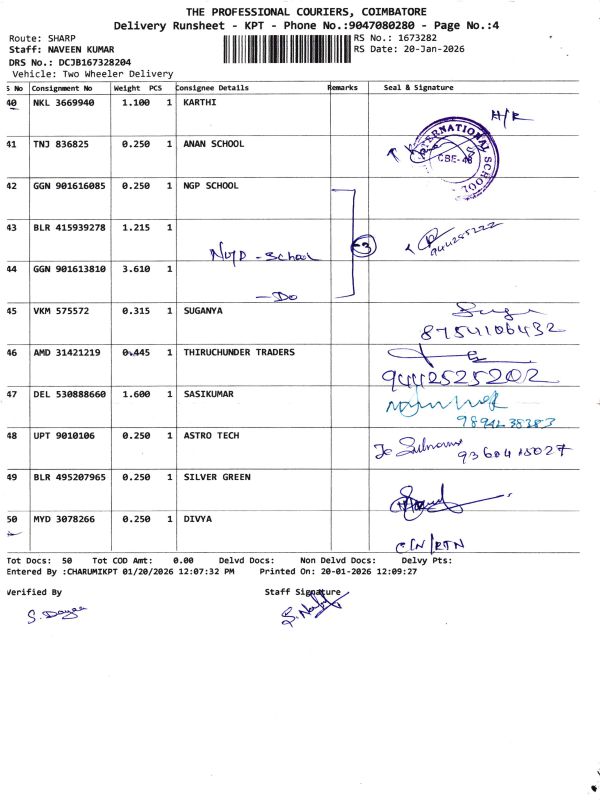 THE PROFESSIONAL COURIERS, COIMBATORE
Delivery Runsheet - KPT - Phone No.:9047080280 - Page No.:4
Route: SHARP
RS No.: 1673282
Staff: NAVEEN KUMAR
RS Date: 20-Jan-2026
DRS No.: DCJB167328204
Vehicle: Two Wheeler Delivery
S No Consignment No Weight PCS Consignee Details Remarks Seal & Signature
40 NKL 3669940 1.100 1 KARTHI
41 TNJ 836825 0.250 1 ANAN SCHOOL
INTERNATIONAL SCHOOL
CBE-48
42 GGN 901616085 0.250 1 NGP SCHOOL
43 BLR 415939278 1.215 1
3
School
44 GGN 901613810 3.610 1
- Do
45 VKM 575572 0.315 1 SUGANYA
8754106432
46 AMD 31421219 0.445 1 THIRUCHUNDER TRADERS
9442525202
47 DEL 530888660 1.600 1 SASIKUMAR
48 UPT 9010106 0.250 1 ASTRO TECH
9360415027
49 BLR 495207965 0.250 1 SILVER GREEN
50 MYD 3078266 0.250 1 DIVYA
C/N/RTN
Tot Docs: 50 Tot COD Amt: 0.00 Delvd Docs: Non Delvd Docs: Delvy Pts:
Entered By :CHARUMIKPT 01/20/2026 12:07:32 PM Printed On: 20-01-2026 12:09:27
Verified By Staff Signature